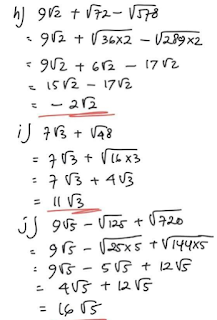 h) 9√2 + √72 - √578
= 9√2 + √36×2 - √289×2
= 9√2 + 6√2 - 17√2
= 15√2 - 17√2
= - 2√2
i) 7√3 + √48
= 7√3 + √16×3
= 7√3 + 4√3
= 11√3
j) 9√5 - √125 + √720
= 9√5 - √25×5 + √144×5
= 9√5 - 5√5 + 12√5
= 4√5 + 12√5
= 16√5